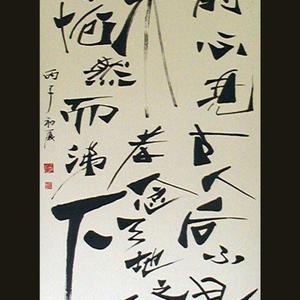 前不見古人后不見
者念天地之
怆然而涕下
丙子初夏